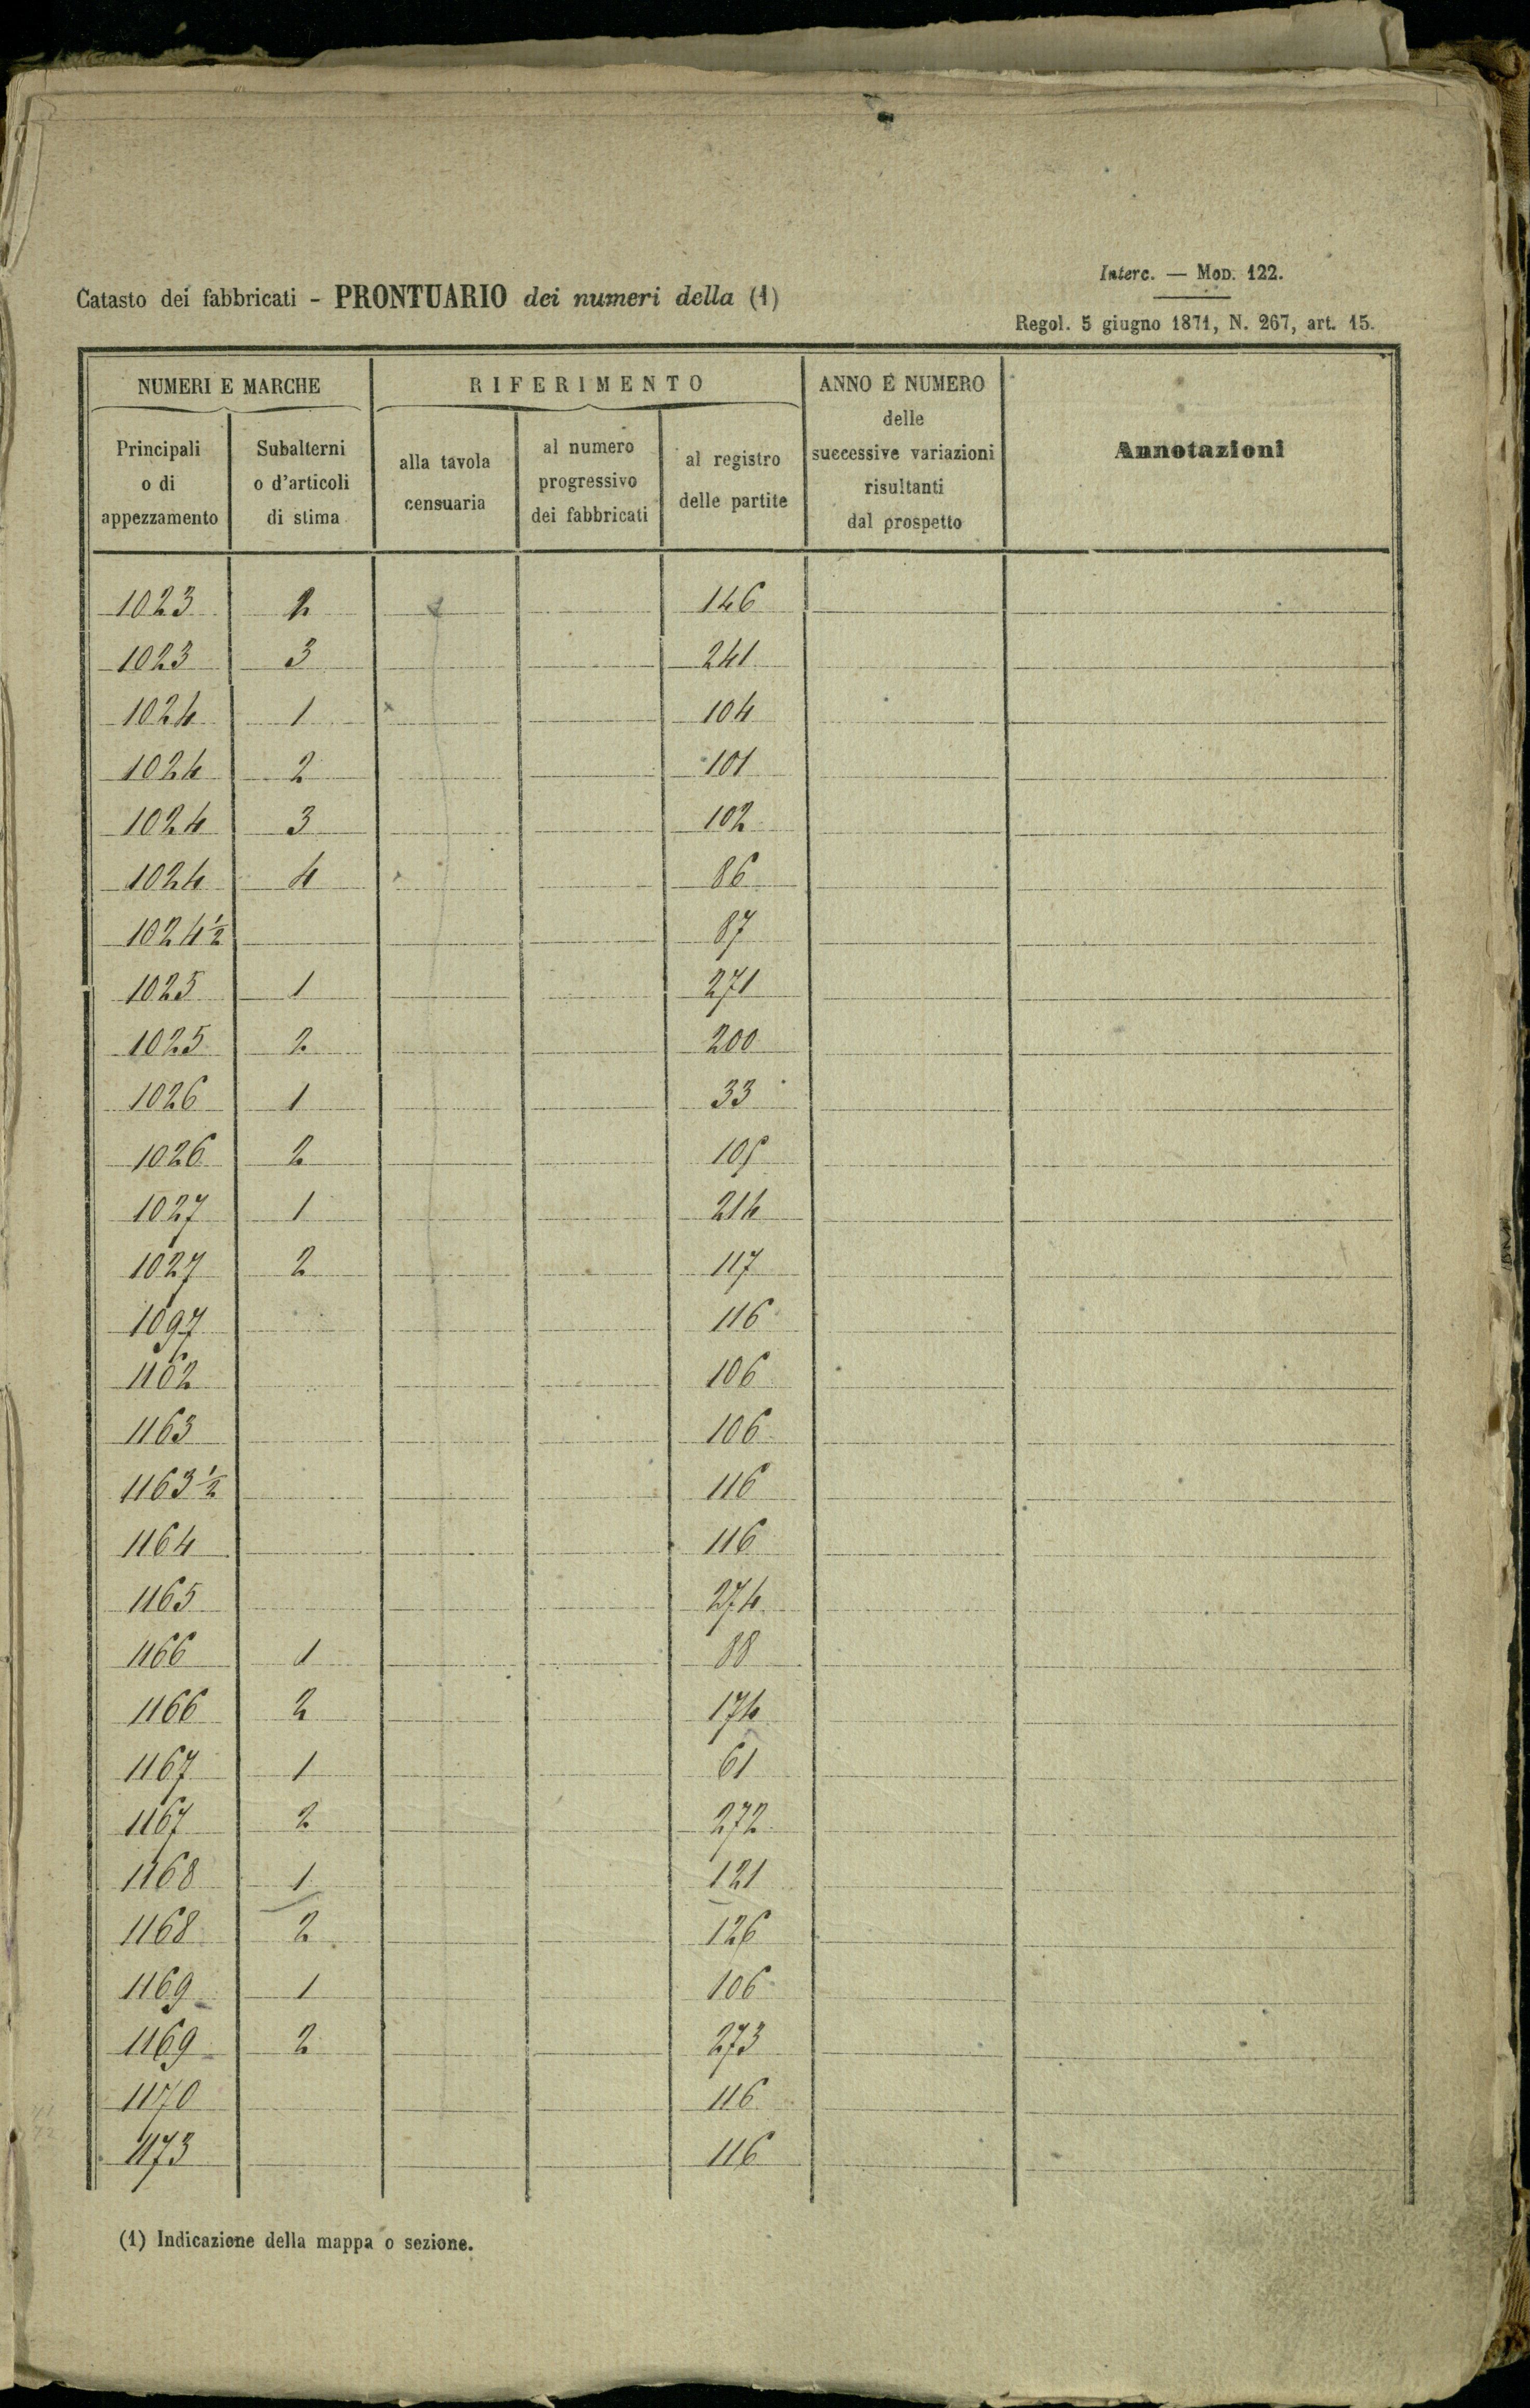 Interc. — MOD. 122.
Catasto dei fabbricati - PRONTUARIO dei numeri della (1)
Regol. 5 giugno 1871, N. 267, art. 15.
NUMERI E MARCHE
RIFERIMENTO
ANNO E NUMERO
delle
successive variazioni
risultanti
dal prospetto
Annotazioni
Principali
o di
appezzamento
Subalterni
o d'articoli
di stima
alla tavola
censuaria
al numero
progressivo
dei fabbricati
al registro
delle partite
1023 2 146
1023 3 241
1024 1 104
1024 2 101
1024 3 102
1024 4 86
1024 1/2 87
1025 1 271
1025 2 200
1026 1 33
1026 2 105
1027 1 214
1027 2 117
1097 116
1162 106
1163 106
1163 1/2 116
1164 116
1165 274
1166 1 88
1166 2 174
1167 1 61
1167 2 272
1168 1 121
1168 2 126
1169 1 106
1169 2 273
1170 116
1173 116
(1) Indicazione della mappa o sezione.